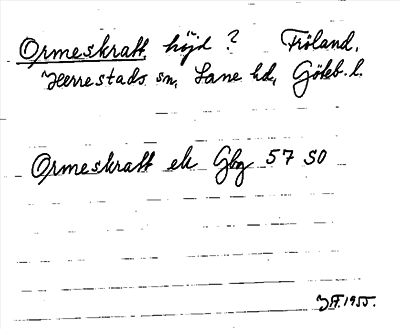 Ormeskratt, höjd? Fröland,
Herrestads sn, Lane hd, Göteb. l.
Ormeskratt ek Gbg 57 SO
1955.